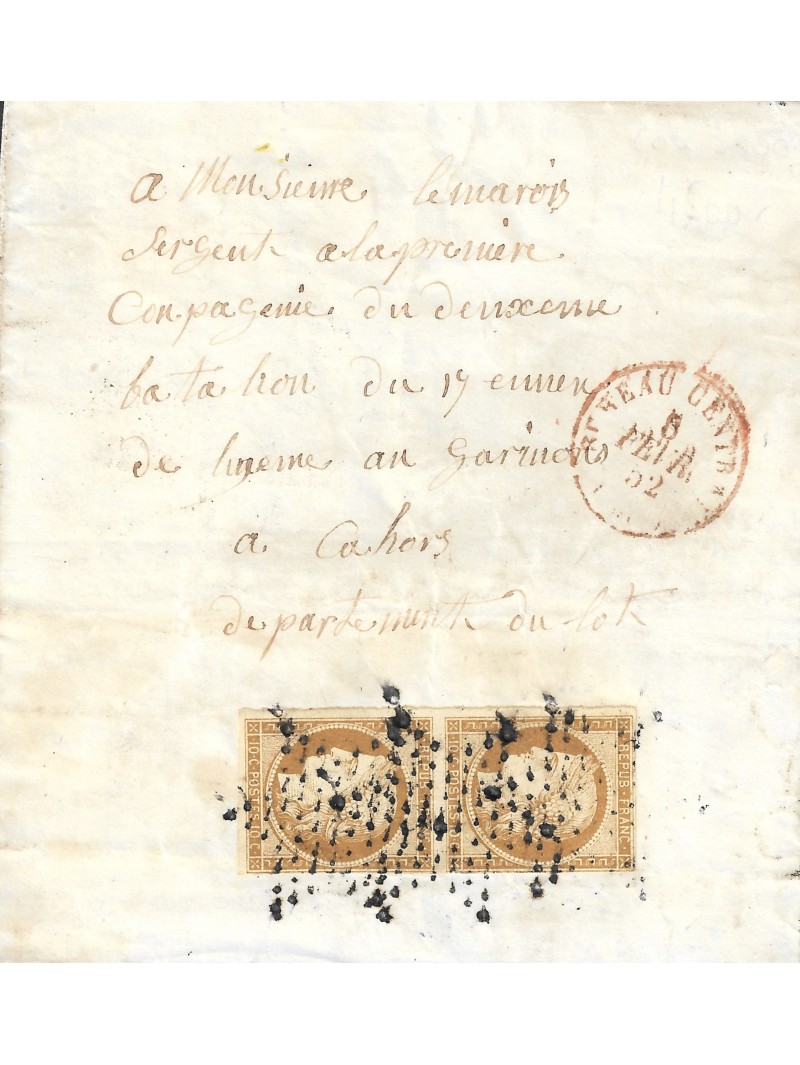 a Monsieure lemarois
Sergent a la premiere
Conpagenie du deuxeme
batalion du 17 emmen
de lugeme au garinons
a Cahors
departement du lot
BUREAU CENTR
FEVR.
52
10.C. POSTES 10.C.
REPUB
10.C. POSTES
REPUB. FRANC.